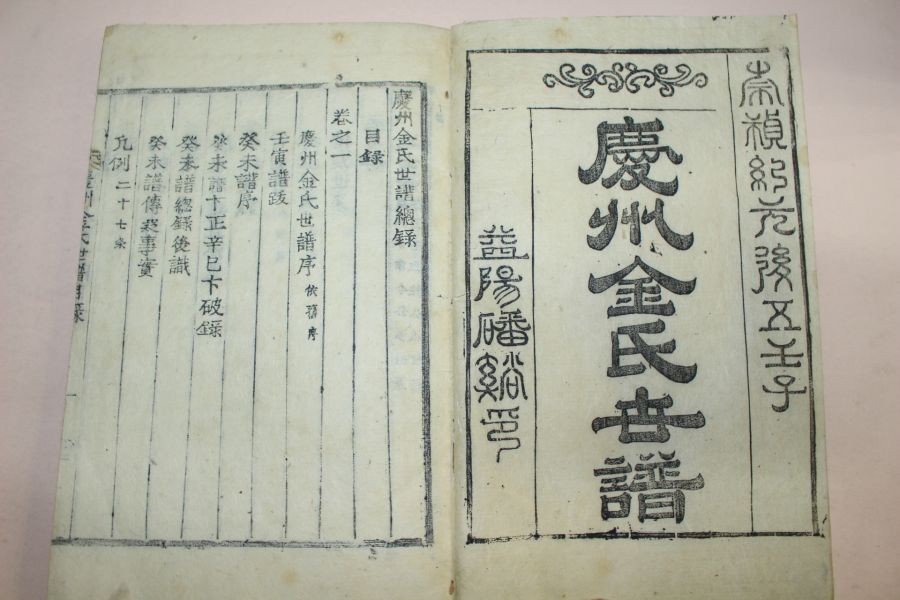 崇禎紀元後五壬子
慶州金氏世譜
益陽磻谿印
慶州金氏世譜總錄
目錄
卷之一
慶州金氏世譜序 依舊序
壬寅譜跋
癸未譜序
癸未譜卞正辛巳卞破錄
癸未譜總錄後識
癸未譜傳來事實
凡例二十七条
慶州金氏世譜目錄
一